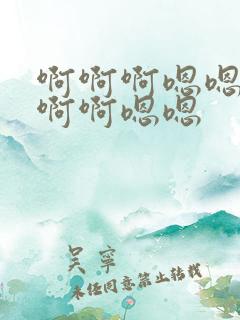 啊啊啊嗯嗯
啊啊嗯嗯
吴宁
未经同意禁止转载